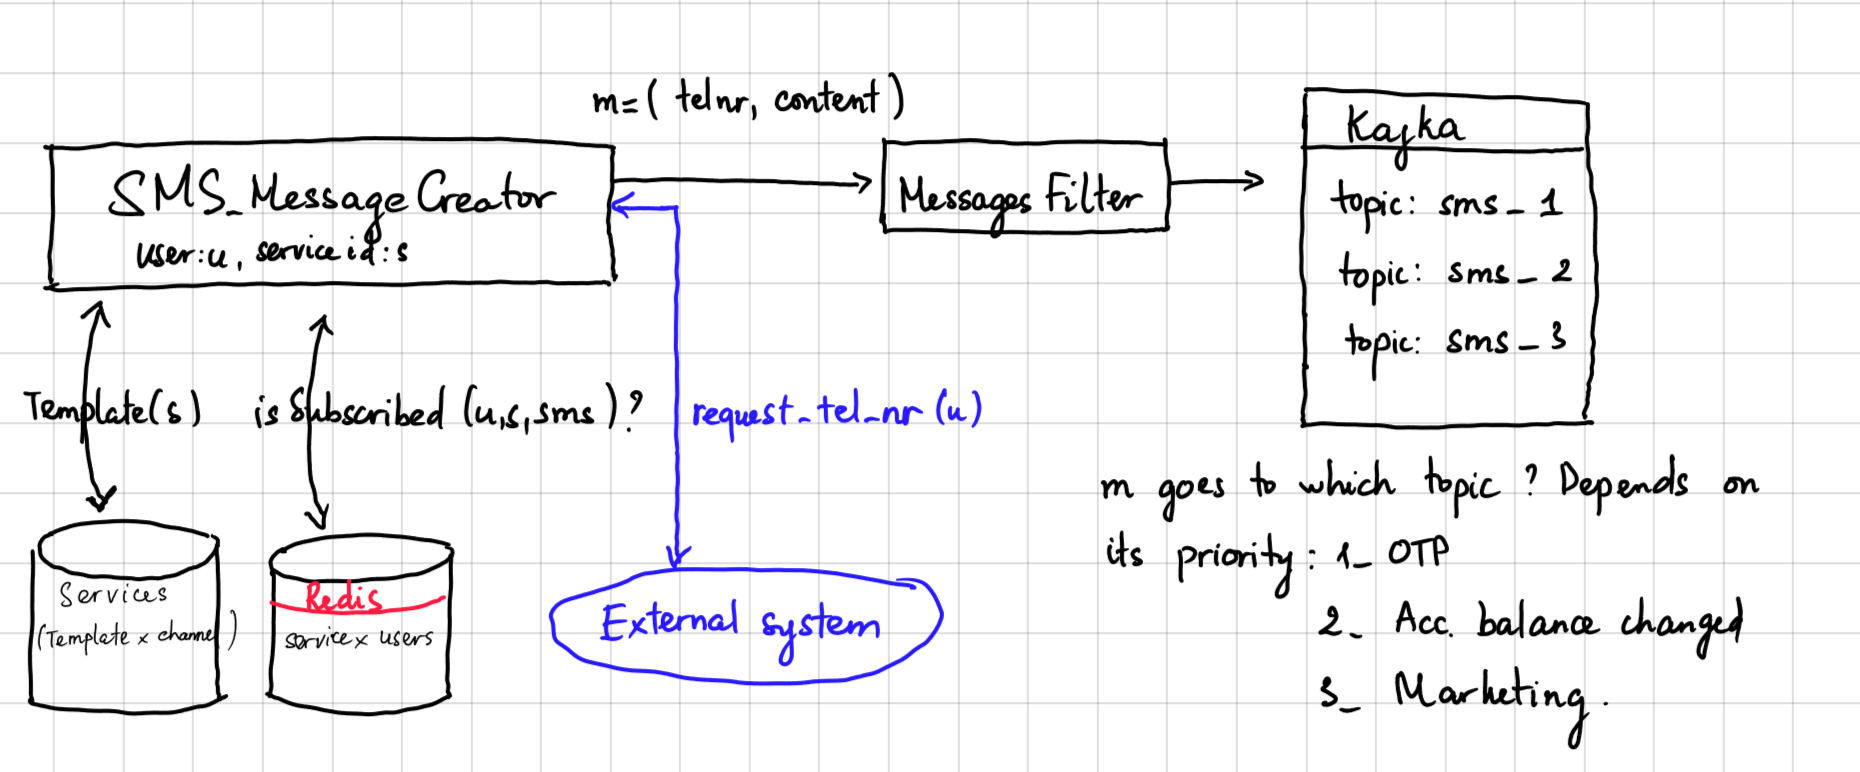 m=( telnr, content )
SMS_Message Creator
user:u, service id:s
Messages Filter
Kafka
topic: sms_1
topic: sms_2
topic: sms_3
Template(s)
is Subscribed (u,s,sms)?
request_tel_nr (u)
Services
(Template x channel)
Redis
service x users
External system
m goes to which topic ? Depends on
its priority: 1_ OTP
2_ Acc. balance changed
3_ Marketing.